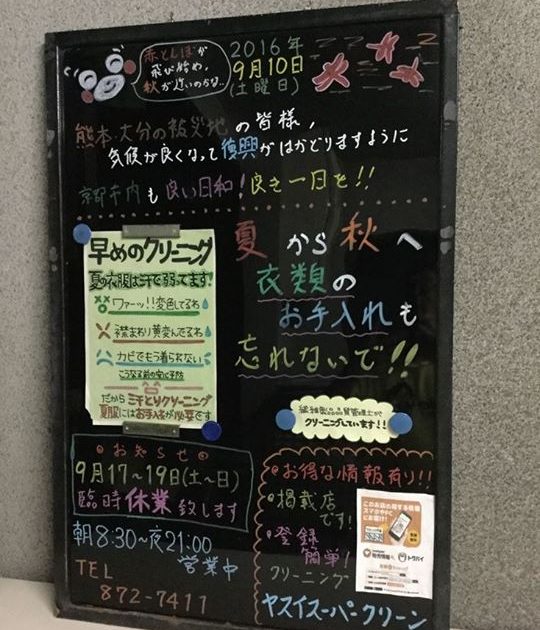 赤とんぼが
飛び始め、
秋が近いのかな..
2016年
9月10日
(土曜日)
熊本・大分の被災地の皆様,
気候が良くなって復興がはかどりますように
市内も良い日和!良き一日を!!
早めのクリーニング
夏の衣服は汗で弱ってます!
ワァーッ!!変色してるわ
襟まわり黄変してるわ
カビでもう着られない
こうなる前の安心予防
だから 汗とりクリーニング
夏服にはお手入れが必要です
夏から秋へ
衣類の
お手入れも
忘れないで!!
繊維製品品質管理士が
クリーニングしています!!
お知らせ
9月17~19日(土~日)
臨時休業致します
朝8:30~夜21:00
営業中
TEL
872-7411
お得な情報有り!!
掲載店
です!
登録
簡単!
クリーニング
ヤスイスーパークリーン
このお店の得する情報
スマホやPCに
お届け!
トクバイ